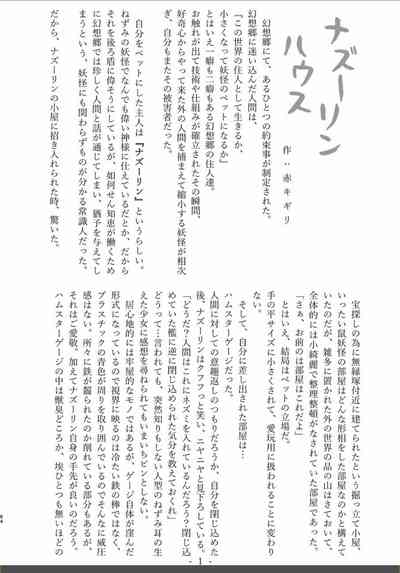 ナズーリン
ハウス
作：赤キギリ
幻想郷にて、あるひとつの約束事が制定された。
幻想郷に迷い込んだ人間は、
「この世界の住人として生きるか、
小さくなって妖怪のペットになるか」
とはいえ一癖も二癖もある幻想郷の住人達。
お触れが出て技術や仕組みが確立されたその瞬間、
好奇心からやって来た外の人間を捕まえて縮小する妖怪が相次
ぐ。自分もまたその被害者だった。
自分をペットにした主人は『ナズーリン』というらしい。
ねずみの妖怪でなんでも偉い神様に仕えているだとか、だから
それを後ろ盾に偉そうにしているが、如何せん知恵が働くため
に幻想郷では珍しく人間と話が通じてしまい、猶予を与えてし
まうという。妖怪にも関わらずものが分かる常識人だった。
だから、ナズーリンの小屋に招き入れられた時、驚いた。
宝探しの為に無縁塚付近に建てられたという掘っ立て小屋。
いったい鼠妖怪の部屋はどんな形相をした部屋なのかと構えて
いたのだが、雑多に置かれた外の世界の品の山はさておいて、
全体的には小綺麗で整理整頓がなされていた部屋であった。
「さぁ、お前の部屋はこれだよ」
とはいえ、結局はペットの立場だ。
手の平サイズに小さくされて、愛玩用に扱われることに変わり
ない。
そして、自分に差し出された部屋は…
ハムスターゲージだった。
人間に対しての意趣返しのつもりだろうか、自分を閉じ込めた
後、ナズーリンはクフフっと笑い、ニヤニヤと見下ろしている。
「どうだ？人間はこれにネズミを入れているんだろう？閉じ込
めていた檻に逆に閉じ込められた気分を教えておくれ」
どうって…言われても、突然知りもしない人型のねずみ耳の生
えた少女に感想を尋ねられてもいまいちピンとしない。
居心地的には牢屋的なモノではあるが、ゲージ自体が窪んだ
形式になっているので視界に映るのは冷たい鉄の棒ではなく、
プラスチックの青色が周りを取り囲んでいるのでそんなに威圧
感はない。所々に鉄が齧られたのか削れている部分もあるが、
それはご愛敬、加えてナズーリン自身の手先が良いのだろう。
ハムスターゲージの中は獣臭どころか、埃ひとつも無いほどの
- 1 -